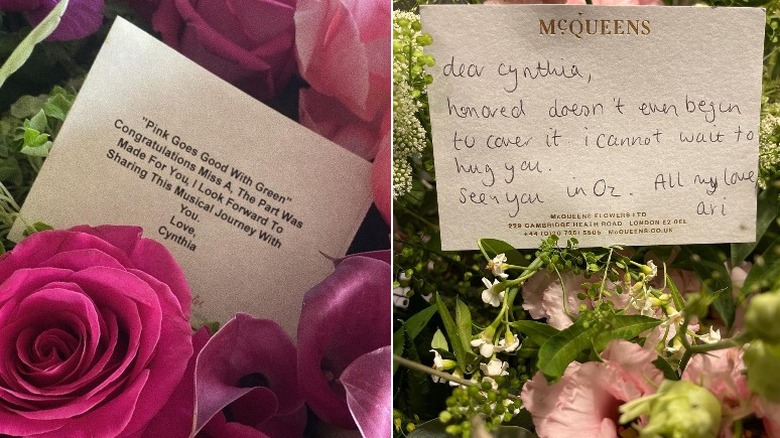 "Pink Goes Good With Green"
Congratulations Miss A, The Part Was
Made For You, I Look Forward To
Sharing This Musical Journey With
You.
Love,
Cynthia
McQUEENS
dear cynthia,
honored doesn't even begin
to cover it i cannot wait to
hug you.
see you in Oz. All my love
ari
McQUEENS FLOWERS LTD
229 CAMBRIDGE HEATH ROAD LONDON E2 0EL
+44 (0)20 7251 5505 McQUEENS.CO.UK